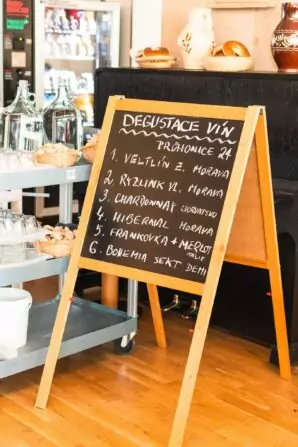 DEGUSTACE VÍN
PRŮHONICE 24
1. VELTLÍN Z. MORAVA
2. RYZLINK VL. MORAVA
3. CHARDONNAY CHORVATSKO
4. HIBERNAL MORAVA
5. FRANKOVKA + MERLOT
ITÁLIE
6. BOHEMIA SEKT DEMI